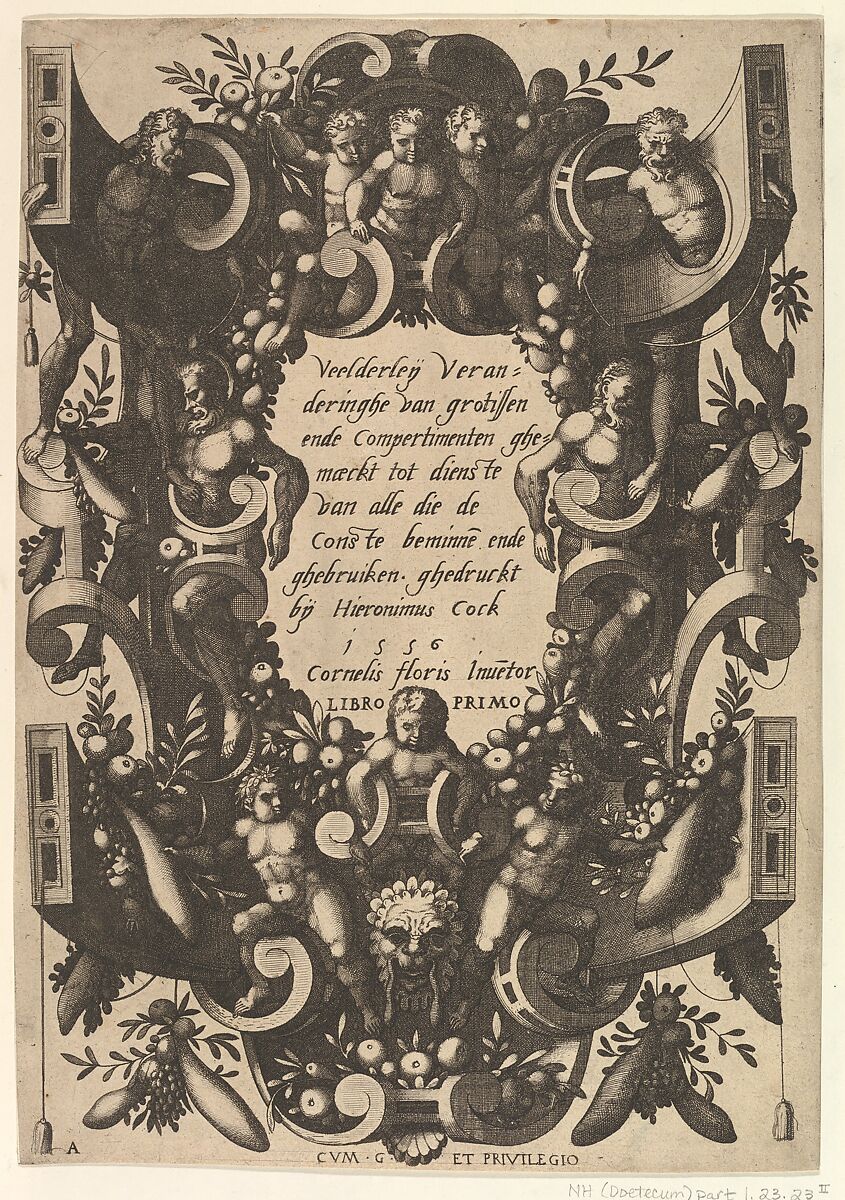 Veelderleÿ Veran=
deringhe van grotissen
ende Compertimenten ghe=
mæckt tot dienste
van alle die de
Conste beminnē ende
ghebruiken. ghedruckt
bÿ Hieronimus Cock
1 5 5 6
Cornelis floris Inuētor
LIBRO PRIMO
A
CVM · G · ET PRIVILEGIO
NH (Doetecum) part 1. 23. 23 II